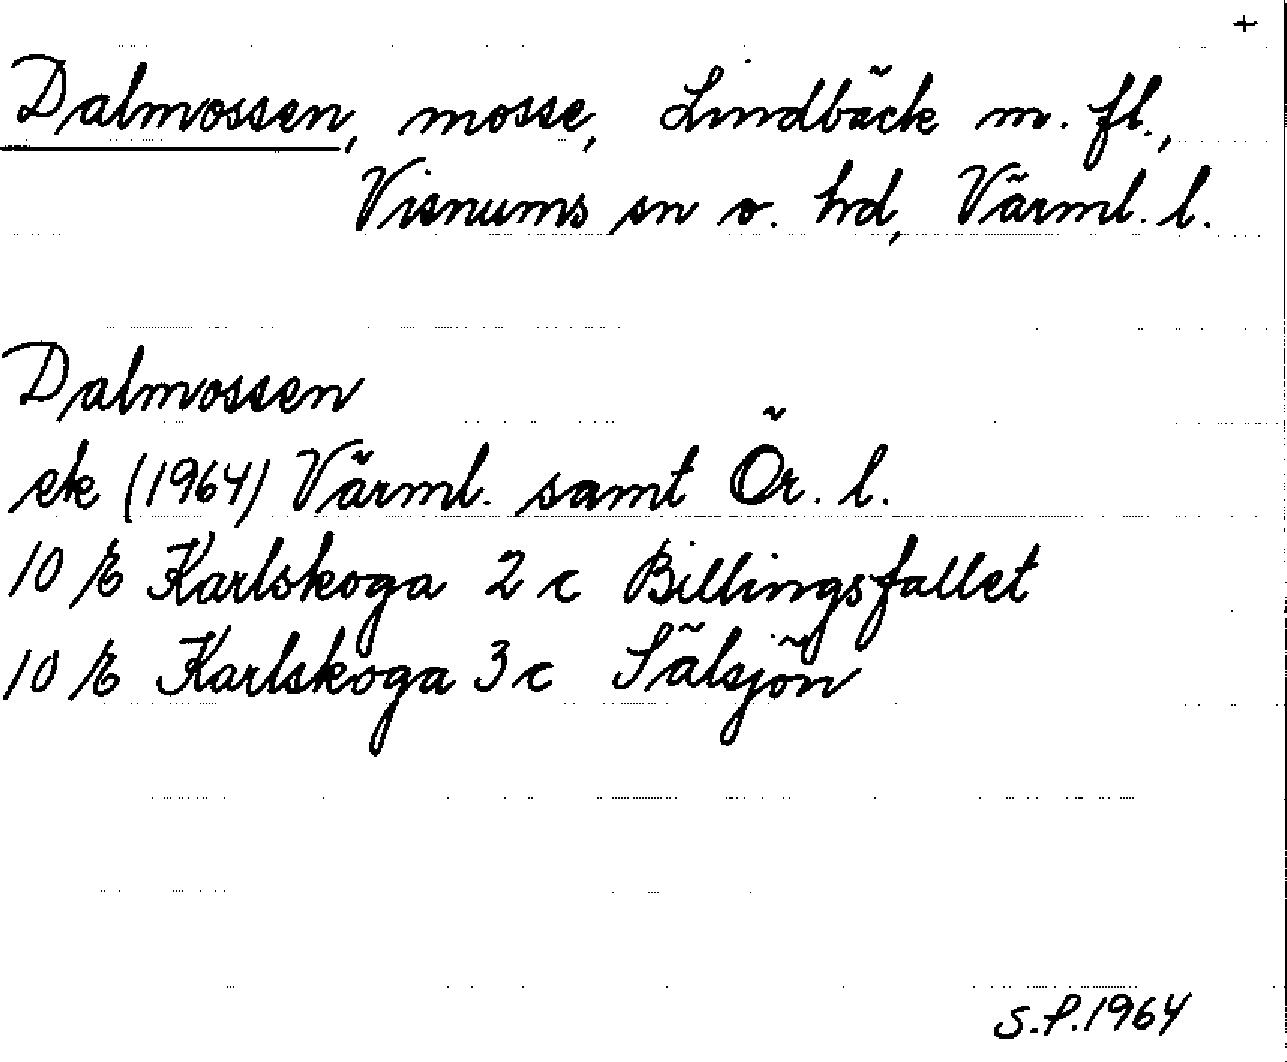 +
Dalmossen, mosse, Lindbäck m. fl.,
Visnums sn o. hd, Värml. l.
Dalmossen
ek (1964) Värml. samt Ör. l.
10 E Karlskoga 2 c Billingsfallet
10 E Karlskoga 3 c Sälsjön
S.P. 1964